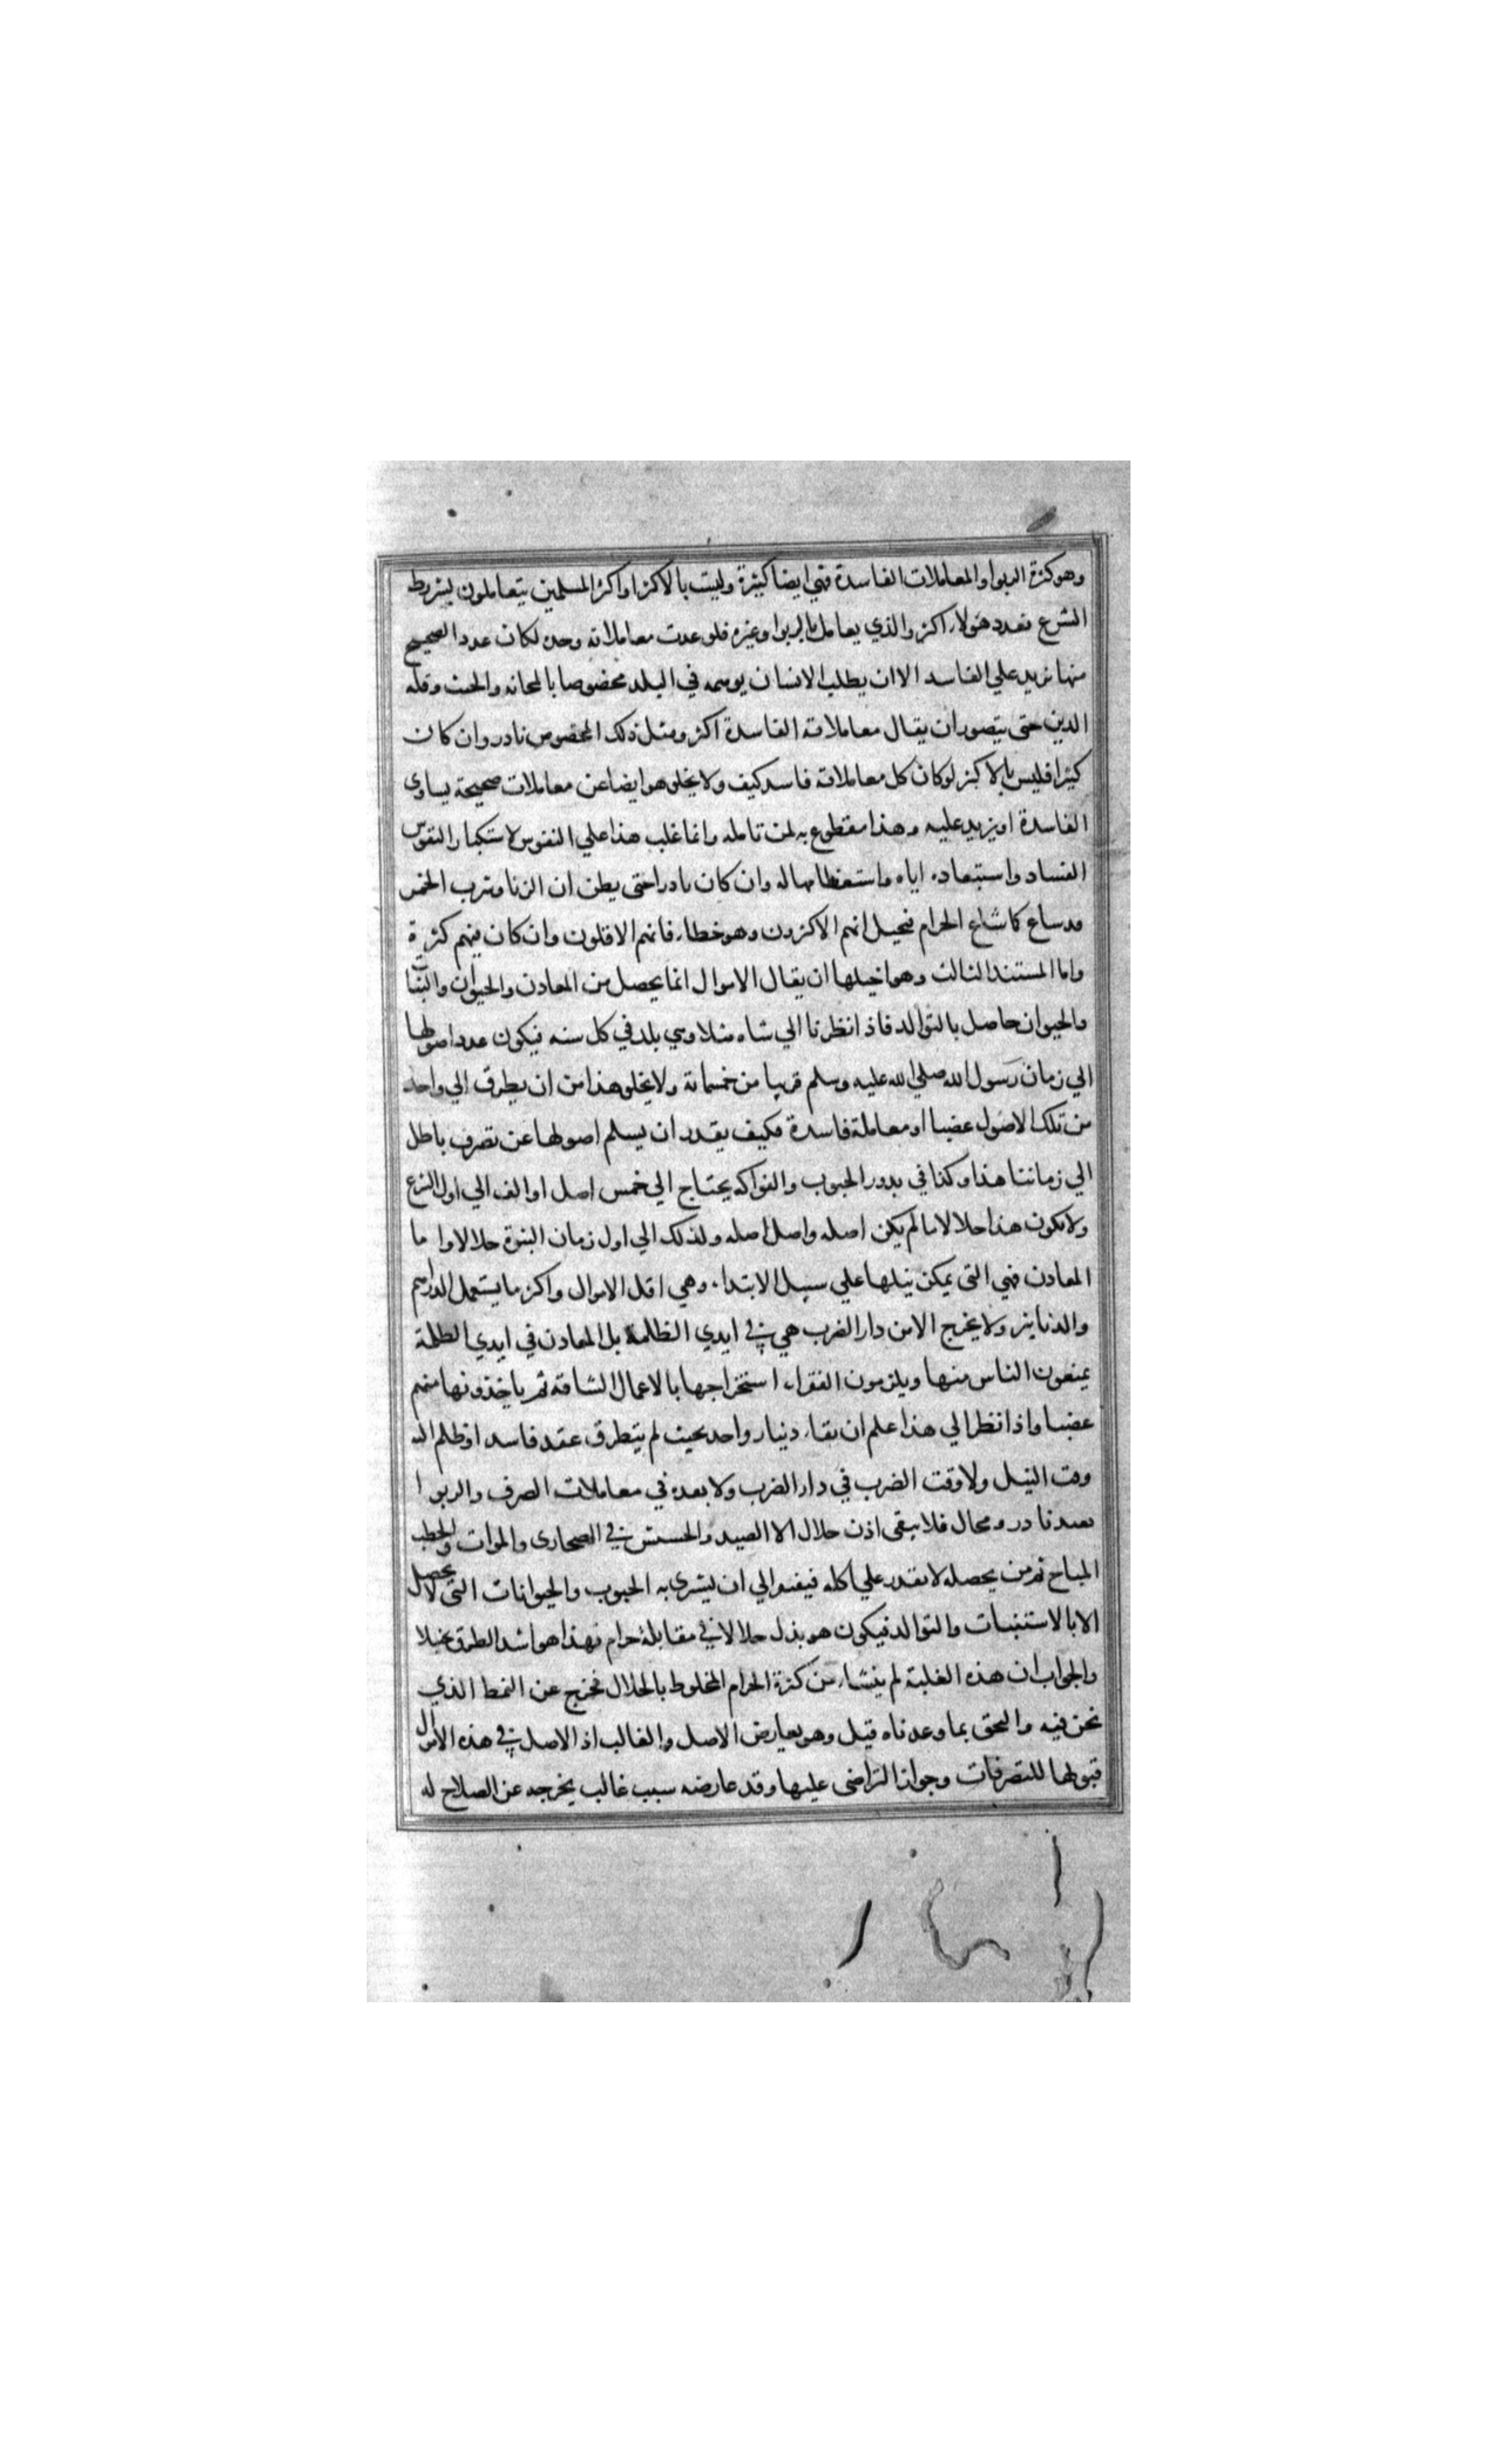 وهو كثرة الربوا والمعاملات الفاسدة فهي ايضا كثيرة وليست بالاكثر اواكثر المسلمين يتعاملون بشروط
الشرع فعدد هولاء اكثر والذي يعامل بالربوا وغيره فلو عدت معاملاته وحده لكان عدد الصحيح
منها يزيد علي الفاسد الا ان يطلب الانسان بوهمه في البلد مخصوصا بالمجانة والخبث وقلة
الدين حتى يتصور ان يقال معاملاته الفاسدة اكثر ومثل ذلك المخصوص نادر وان كان
كثيرا فليس بالاكثر لوكان كل معاملاته فاسد كيف ولا يخلو هو ايضا عن معاملات صحيحة يساوى
الفاسدة او يزيد عليه وهذا مقطوع به لمن تامله وانما غلب هذا علي النفوس لاستكبار النفوس
الفساد واستبعاده اياه واستعظامها له وان كان نادرا حتى يظن ان الزنا وشرب الخمر
قد شاع كما شاع الحرام فيخيل انهم الاكثرون وهو خطاء فانهم الاقلون وان كان فيهم كثرة
واما المستند الثالث وهو اخيلها ان يقال الاموال انما يحصل من المعادن والحيوان والنبات
والحيوان حاصل بالتوالد فاذا نظرنا الي شاه مثلا وهي يلد في كل سنه فيكون عدد اصولها
الي زمان رسول الله صلي الله عليه وسلم قريبا من خمسماية ولا يخلو هذا من ان يطرق الي واحد
من تلك الاصول غصبا او معاملة فاسدة فكيف يقدر ان يسلم اصولها عن تصرف باطل
الي زماننا هذا وكذا في بدور الحبوب والفواكه يحتاج الي خمس اصل او الف الي اول الشرع
ولا يكون هذا حلالا ما لم يكن اصله واصل اصله ولذلك الي اول زمان النبوة حلالا واما
المعادن فهي التى يمكن نيلها علي سبيل الابتداء وهي اقل الاموال واكثر ما يستعمل الدراهم
والدنانير ولا يخرج الا من دار الضرب هي في ايدي الظلمة بل المعادن في ايدي الظلمة
يمنعون الناس منها ويلزمون الفقراء استخراجها بالاعمال الشاقة ثم ياخذونها منهم
غصبا واذا نظر الي هذا علم ان بقاء دينار واحد بحيث لم يتطرق عقد فاسد او ظلم اليه
وقت النيل ولا وقت الضرب في دار الضرب ولا بعده في معاملات الصرف والربوا
بعيد نادر ومحال فلا يبقى اذن حلال الا الصيد والحشيش في الصحارى والموات والحطب
المباح ثم من يحصله لا يقدر علي اكله فيفتقر الي ان يشرى به الحبوب والحيوانات التى لا يحصل
الا بالاستنبات والتوالد فيكون هو بذل حلالا في مقابلة حرام فهذا هو اشد الطرق تخيلا
والجواب ان هذه الغلبة لم ينشاء من كثرة الحرام المخلوط بالحلال فخرج عن النمط الذي
نحن فيه والتحق بما وعدناه قبل وهو يعارض الاصل والغالب اذ الاصل في هذه الاموال
قبولها للتصرفات وجواز التراضى عليها وقد عارضه سبب غالب يخرجه عن الصلاح له